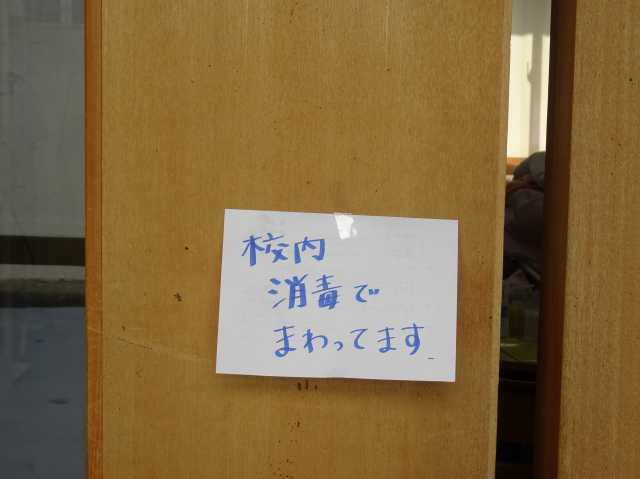 校内
消毒で
まわってます